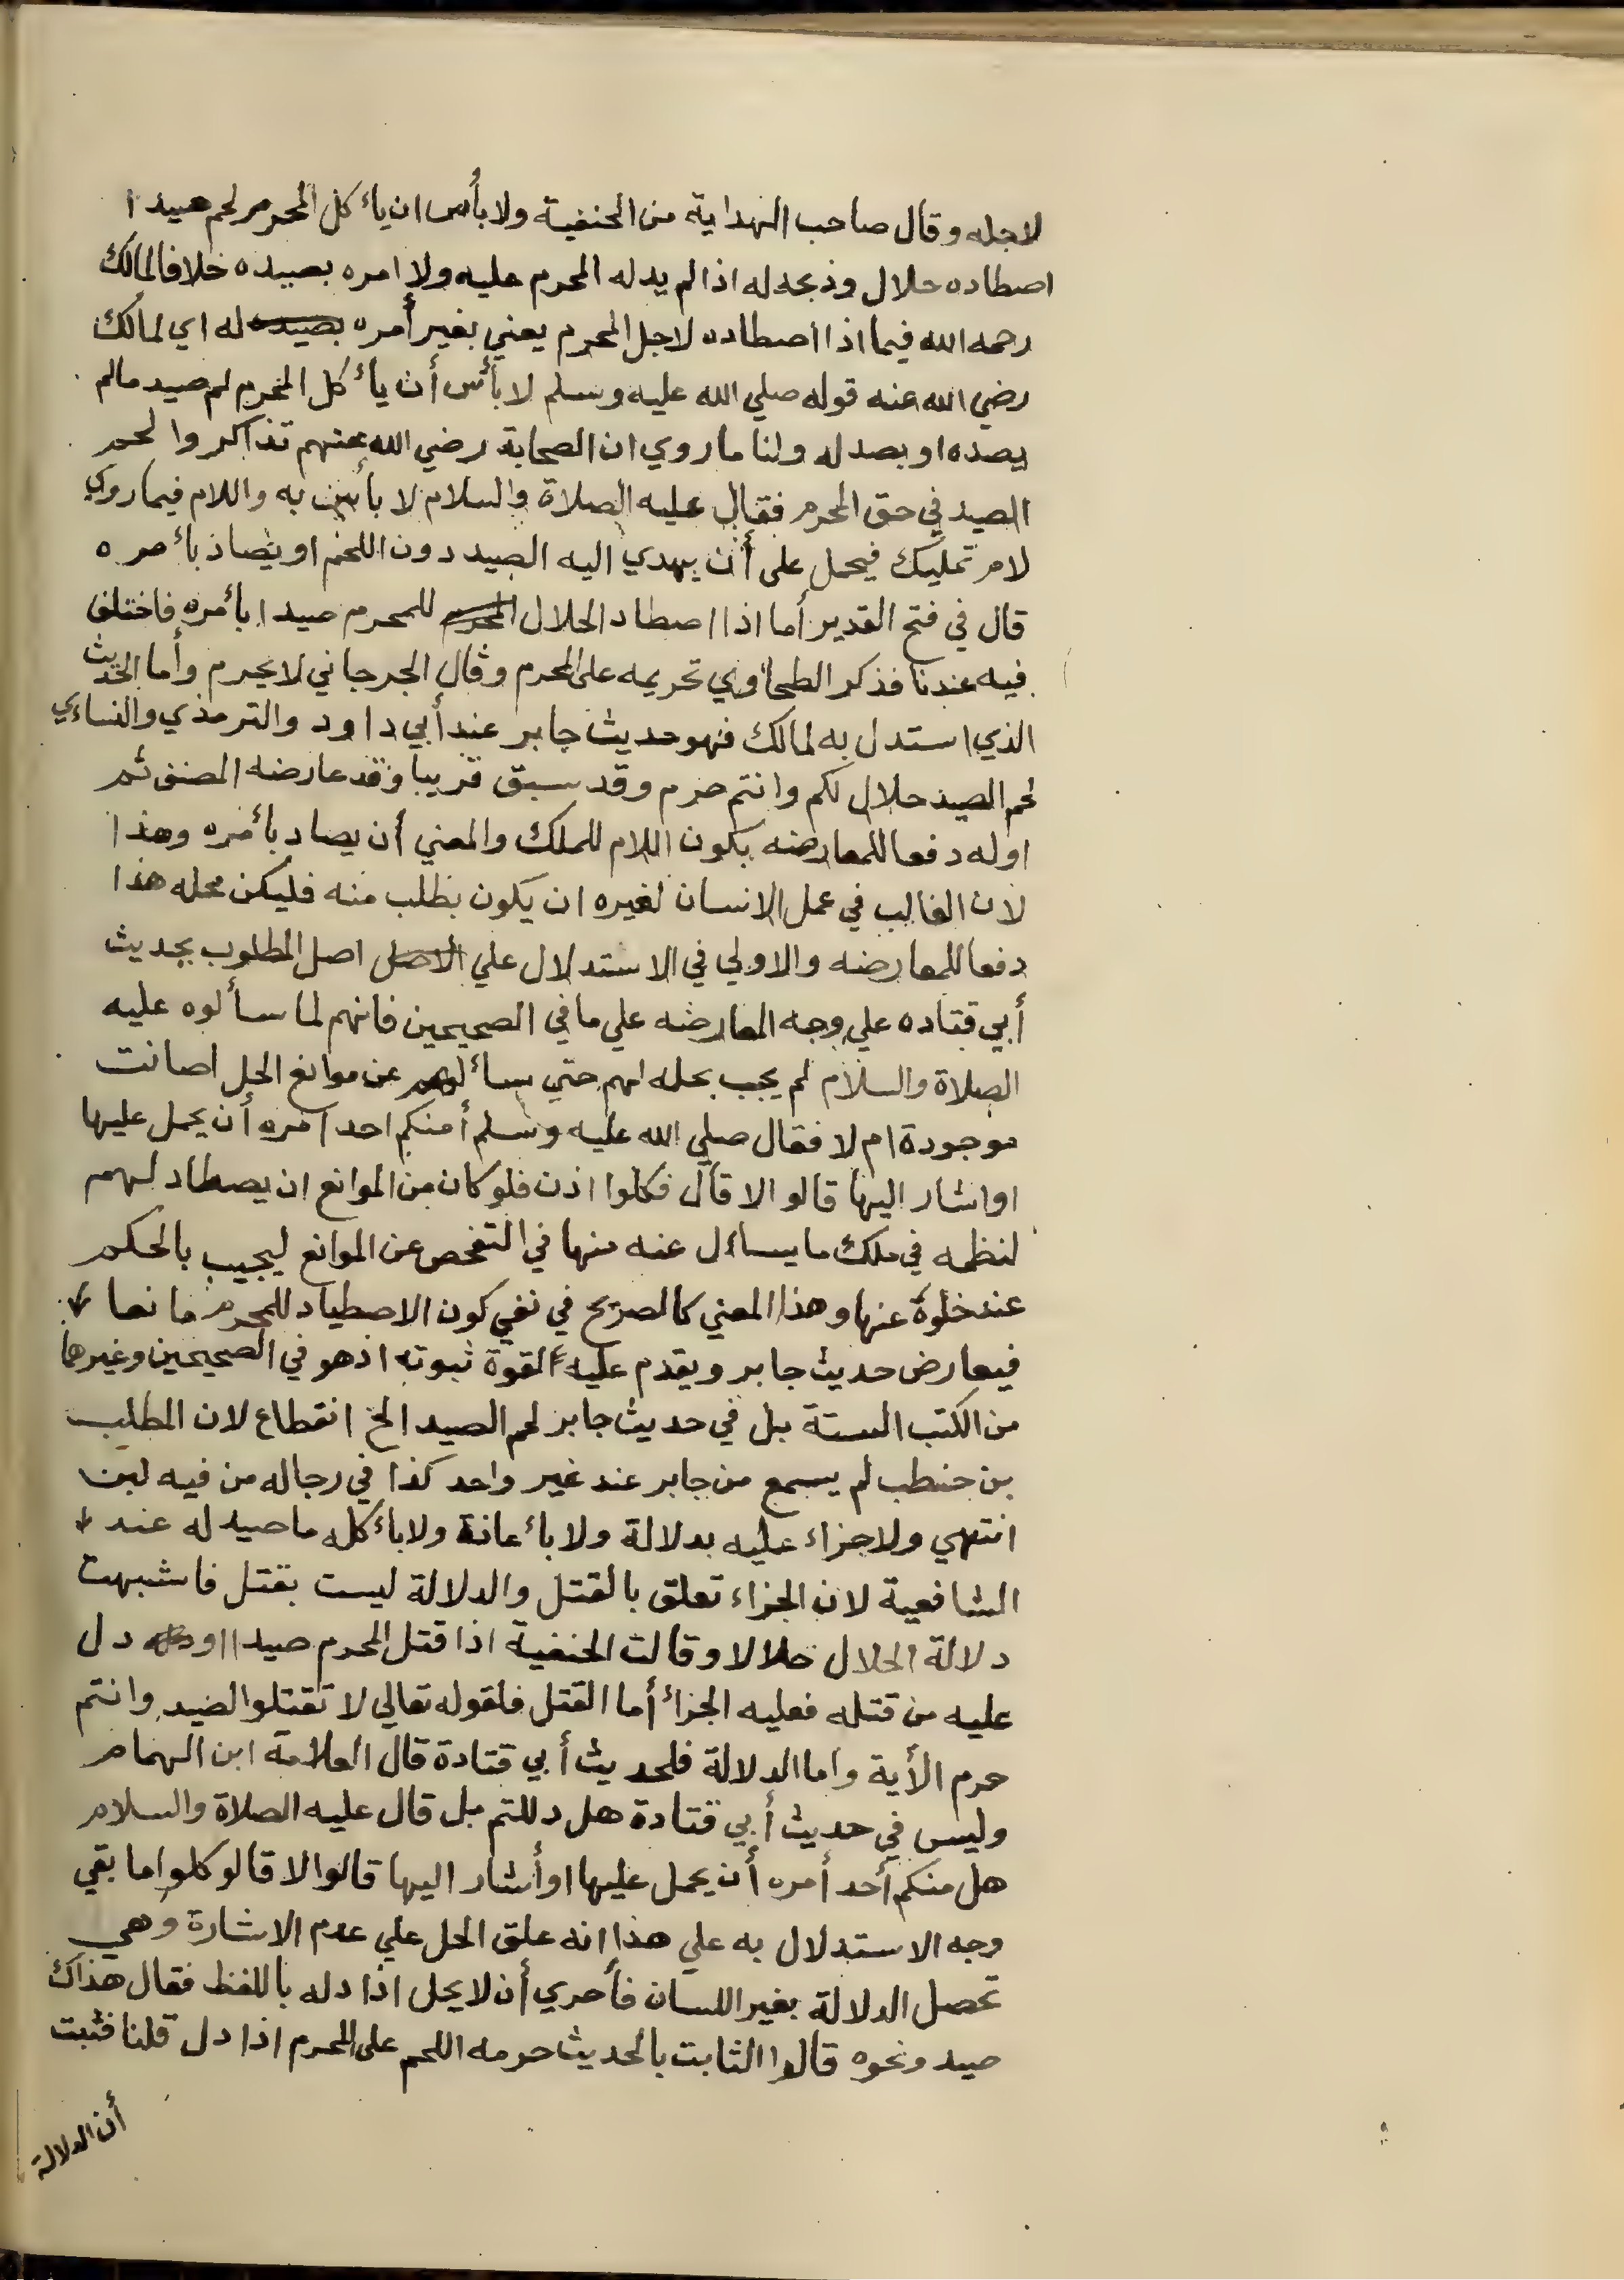 لاجله وقال صاحب الهداية من الحنفية ولا بأس ان يأكل المحرم لحم صيدا
اصطاده حلال وذبحه له اذا لم يدله المحرم عليه ولا امره بصيده خلافا لمالك
رحمه الله فيما اذا اصطاده لاجل المحرم يعني بغير أمره بصيده له اي لمالك
رضي الله عنه قوله صلي الله عليه وسلم لا بأس أن يأكل المحرم لحم صيد مالم
يصده او يصد له ولنا ما روي ان الصحابة رضي الله عنهم تذاكروا لحم
الصيد في حق المحرم فقال عليه الصلاة والسلام لا بأس به واللام فيما روي
لام تمليك فيحمل على أن يهدي اليه الصيد دون اللحم او يصاد بأمره
قال في فتح القدير أما اذا اصطاد الحلال المحرم للمحرم صيدا بأمره فاختلف
فيه عندنا فذكر الطحاوي تحريمه على المحرم وقال الجرجاني لا يحرم وأما الحديث
الذي استدل به لمالك فهو حديث جابر عند أبي داود والترمذي والنساءي
لحم الصيد حلال لكم وانتم حرم وقد سبق قريبا وقد عارضه المصنف ثم
اوله دفعا للمعارضه بكون اللام للملك والمعني أن يصاد بأمره وهذا
لان الغالب في عمل الانسان لغيره ان يكون بطلب منه فليكن محله هذا
دفعا للمعارضه والاولي في الاستدلال علي الاصل اصل المطلوب بحديث
أبي قتاده علي وجه المعارضه علي ما في الصحيحين فانهم لما سألوه عليه
الصلاة والسلام لم يجب بحله لهم حتي سألهم عن موانع الحل اصانت
موجودة ام لا فقال صلي الله عليه وسلم أمنكم احد امره أن يحمل عليها
او اشار اليها قالوا لا قال فكلوا اذن فلو كان من الموانع ان يصطاد لهم
لنظمه في ملك ما يساءل عنه منها في التفحص عن الموانع ليجيب بالحكم
عند خلوة عنها وهذا المعني كالصريح في نفي كون الاصطياد للمحرم مانعا
فيعارض حديث جابر ويقدم عليه القوة ثبوته اذ هو في الصحيحين وغيرهما
من الكتب الستة بل في حديث جابر لحم الصيد الخ انقطاع لان المطلب
بن حنطب لم يسمع من جابر عند غير واحد كذا في رجاله من فيه لين
انتهي ولا جزاء عليه بدلالة ولا بأعانة ولا بأكله ما صيد له عند
الشافعية لان الجزاء تعلق بالقتل والدلالة ليست بقتل فاشبهت
دلالة الحلال حلالا وقالت الحنفية اذا قتل المحرم صيدا او دل
عليه من قتله فعليه الجزائ أما القتل فلقوله تعالي لا تقتلوا الصيد وانتم
حرم الأية واما الدلالة فلحديث أبي قتادة قال العلامة ابن الهمام
وليس في حديث أبي قتادة هل دللتم بل قال عليه الصلاة والسلام
هل منكم أحد أمره أن يحمل عليها او أشار اليها قالوا لا قالو كلوا ما بقي
وجه الاستدلال به علي هذا انه علق الحل علي عدم الاشارة وهي
تحصل الدلالة بغير اللسان فأحري أن لا يحل اذا دله باللفظ فقال هذاك
صيد ونحوه قالوا الثابت بالحديث حرمه اللحم على المحرم اذا دل قلنا فثبت
أن الدلالة